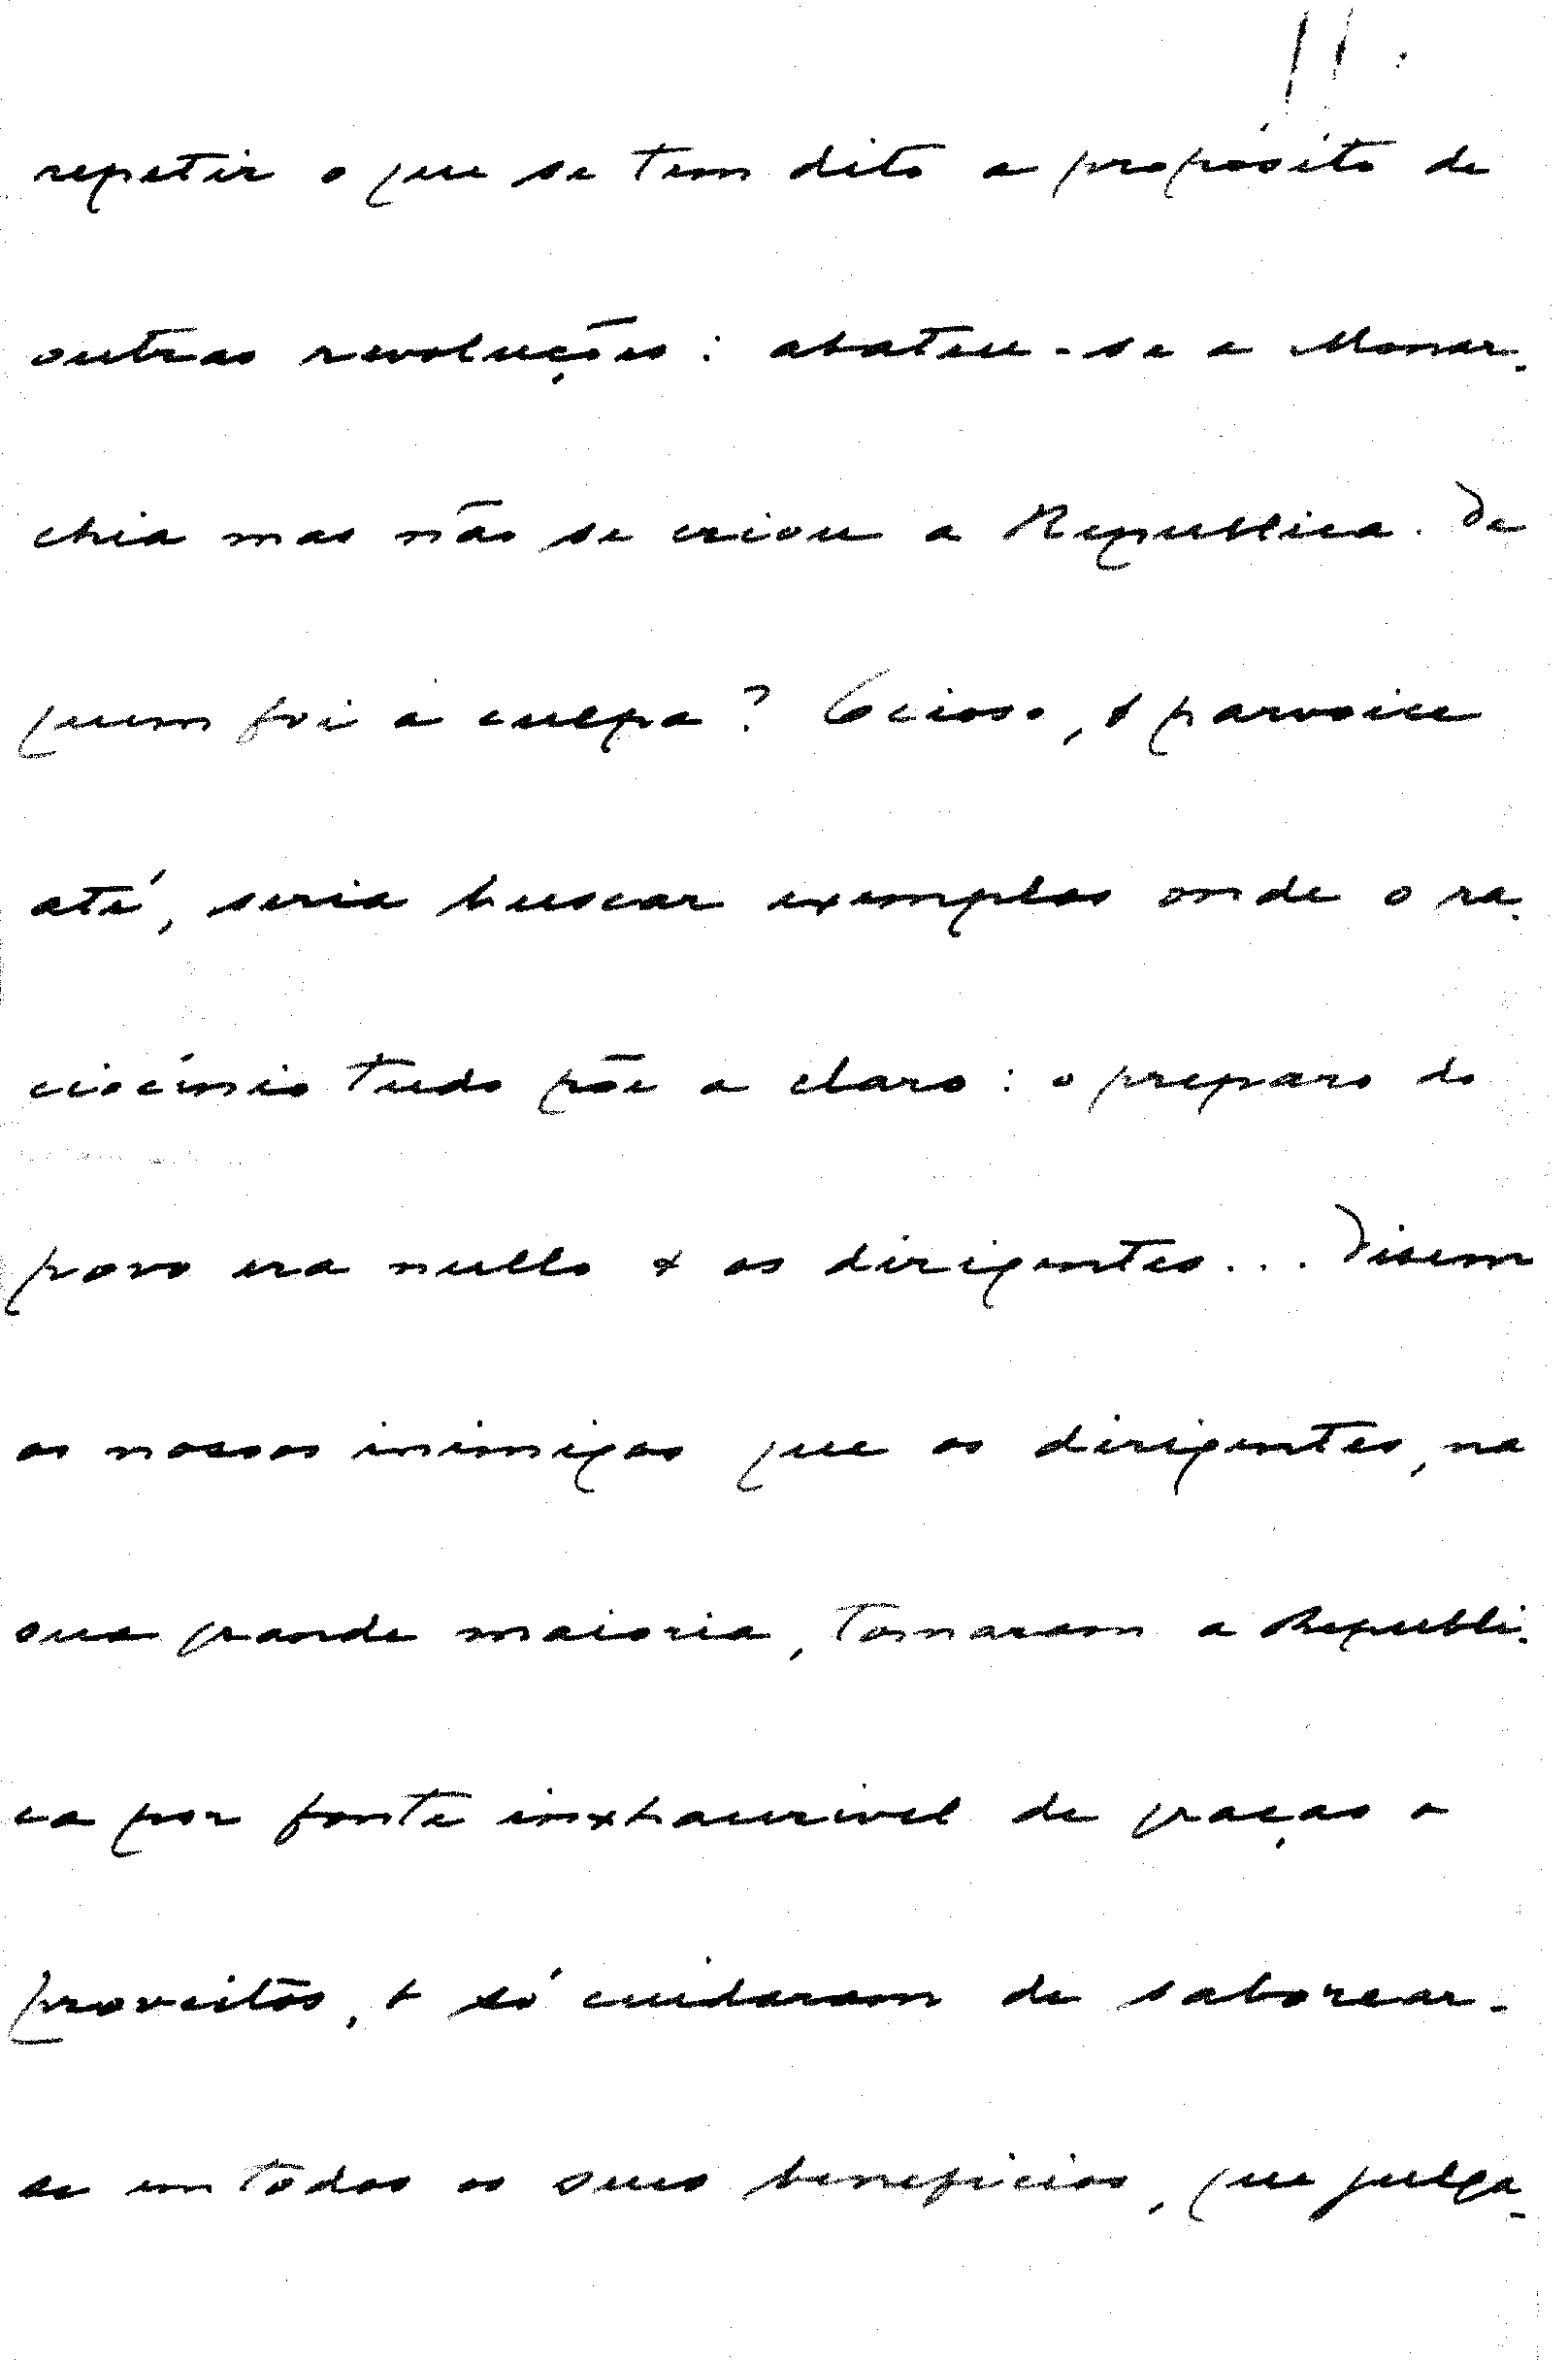 11.
repetir o que se tem dito a propósito de
outras revoluções: abateu-se a Monar-
chia mas não se criou a Republica. De
quem foi a culpa? Ocioso, & parvoice
até, seria buscar exemplos onde o ra-
ciocínio tudo põe a claro: o preparo do
povo era nullo & os dirigentes... Disem
os nossos inimigos que os dirigentes, na
sua grande maioria, tomaram a Republi-
ca por fonte inexhaurivel de graças e
proveitos, & só cuidaram de saborear-
se em todos os seus beneficios, que julga-